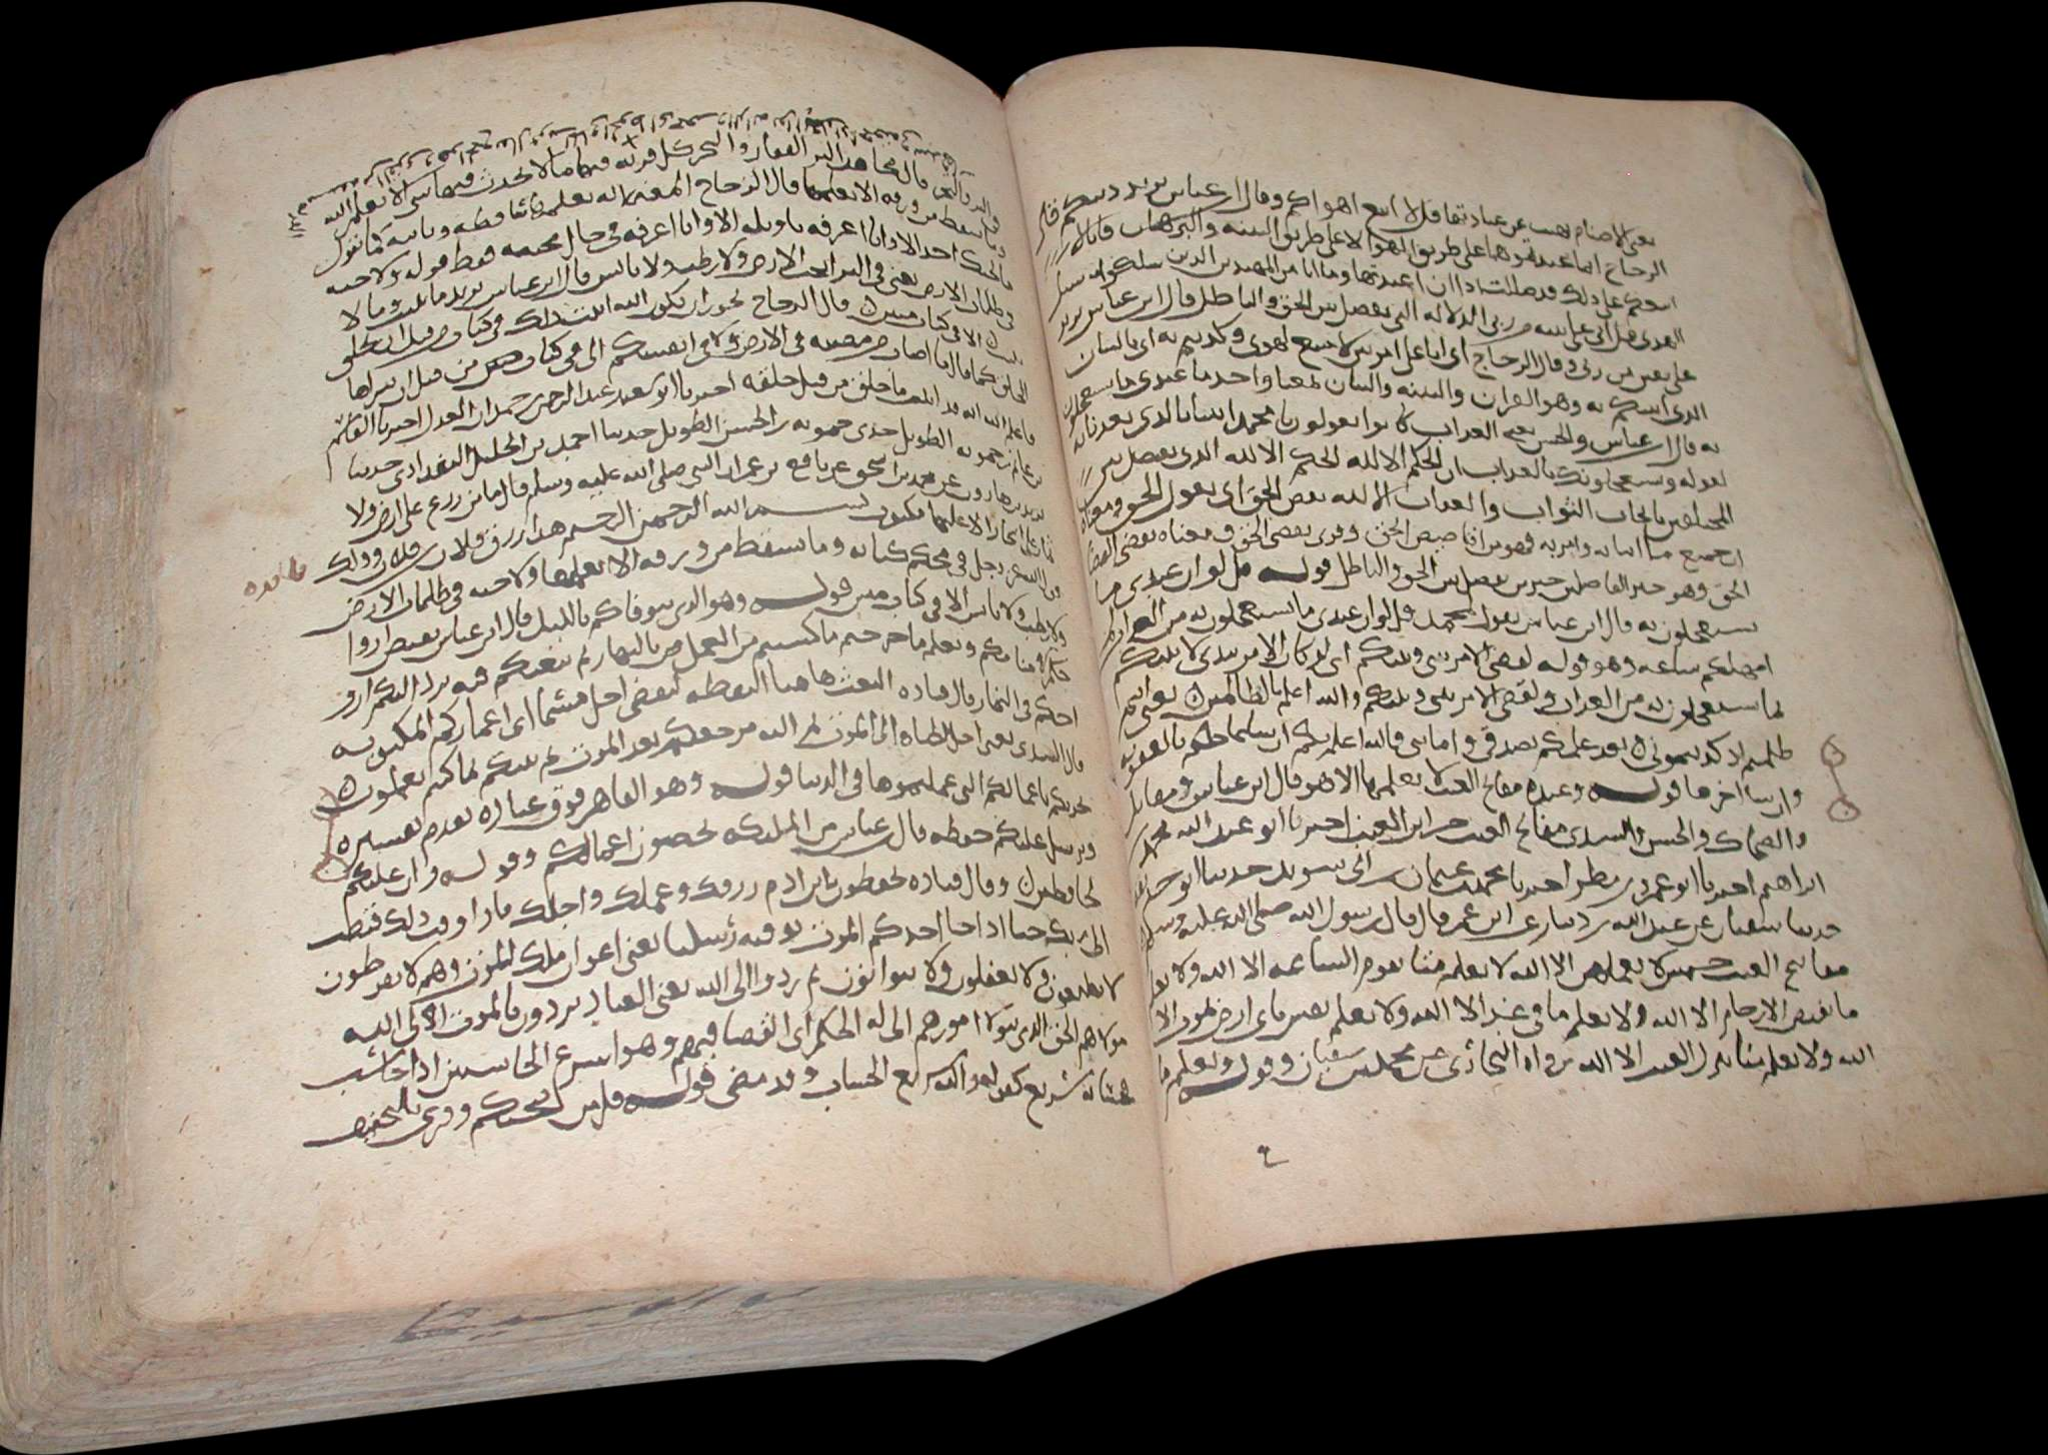 يعنى الاصنام نهيت عن عبادتها قل لا اتبع اهواكم وقال ابن عباس يريد دينكم قال
الزجاج انما عبدتموها على طريق الهوا لا على طريق البينه والبرهان فانا لا
اتبعكم على ذلك قد ضللت اذا ان عبدتها وما انا من المهتدين الذين سلكوا سبيل
الهدى قل انى على بينه من ربى الدلاله التى تفصل بين الحق والباطل قال ابن عباس يريد
على يقين من ربى وقال الزجاج اى انا على امر بين لا متبع لهوى وكذبتم به اى بالبيان
الذى اتيتكم به وهو القران والبينه والبيان بمعنا واحد ما عندى ما تستعجلون
به قال ابن عباس والحسن يعنى العذاب كانوا يقولون يا محمد ايتنا بالذى تعدنا به
لقوله ويستعجلونك بالعذاب ان الحكم الا لله الحكم الا لله الذى يفصل بين
المختلفين بايجاب الثواب والعقاب الا لله يقص الحق اى يقول الحق ومعناه
ان جميع ما انبا به وامر به فهو من اقاصيص الحق وقرى يقضى الحق ومعناه يقضى القضا
الحق وهو خير الفاصلين خير من يفصل بين الحق والباطل قوله قل لو ان عندى ما
تستعجلون به قال ابن عباس يقول لمحمد قل لو ان عندى ما تستعجلون به من العذاب لم
امهلكم ساعه وهو قوله لقضى الامر بينى وبينكم اى لو كان الامر بيدى لاتيتكم
بما تستعجلون به من العذاب ولقضى الامر بينى وبينكم والله اعلم بالظالمين يعنى انكم
ظلمتم اذ كذبتمونى بعد علمكم بصدقى وامانتى فالله اعلم بكم ان شا عاجلكم بالعقوبه
وان شا اخرها قوله وعنده مفاتح الغيب لا يعلمها الا هو قال ابن عباس ومقاتل
والضحاك والحسن والسدى مفاتح الغيب خزاين الغيب اخبرنا ابو عبد الله محمد بن
ابراهيم اخبرنا ابو عمرو بن مطر اخبرنا محمد بن عثمان بن ابى سويد حدثنا ابو حذيفه
حدثنا سفيان عن عبد الله بن دينار عن ابن عمر قال قال رسول الله صلى الله عليه وسلم
مفاتيح الغيب خمس لا يعلمهن الا الله لا يعلم متا تقوم الساعه الا الله ولا يعلم
ما تغيض الارحام الا الله ولا يعلم ما فى غد الا الله ولا تعلم نفس باى ارض تموت الا
الله ولا يعلم متا ينزل الغيث الا الله رواه البخارى عن محمد بن سفيان وقوله ويعلم ما
فى البر والبحر قال مجاهد البر القفار والبحر كل قريه فيها ما لا يحدث فيها شى الا يعلمه الله
وما تسقط من ورقه الا يعلمها قال الزجاج المعنى انه يعلمها ساقطه وثابته كما تقول
ما يجيك احد الا وانا اعرفه تاويله الا وانا اعرفه فى حال مجيه فقط قوله ولا حبه
فى ظلمات الارض يعنى فى الثرا تحت الارض ولا رطب ولا يابس قال ابن عباس يريد ما ينبت وما لا
ينبت الا فى كتاب مبين قال الزجاج يجوز ان يكون الله اثبت ذلك فى كتاب من قبل ان يخلق
الخلق كما قال ما اصاب من مصيبه فى الارض ولا فى انفسكم الا فى كتاب من قبل ان نبراها
فاعلم الله انه قد اثبت ما خلق من قبل خلقه اخبرنا ابو سعد عبد الرحمن بن حمدان العدل اخبرنا القاسم
بن غانم بن حمويه الطويل حدثنى حمويه بن الحسن الطويل حدثنا احمد بن الخليل البغدادى حدثنا
يزيد بن هارون عن محمد بن اسحق عن نافع عن ابن عمر ان النبى صلى الله عليه وسلم قال ما من زرع على الارض ولا
ثمار على اشجار الا عليها مكتوب بسم الله الرحمن الرحيم هذا رزق فلان بن فلان وذلك
قول الله عز وجل فى محكم كتابه وما تسقط من ورقه الا يعلمها ولا حبه فى ظلمات الارض
ولا رطب ولا يابس الا فى كتاب مبين قوله وهو الذى يتوفاكم بالليل قال ابن عباس يقبض ارواحكم
فى منامكم ويعلم ما جرحتم ما كسبتم من العمل بالنهار ثم يبعثكم فيه يرد اليكم ارواحكم
فى النهار قال قتاده البعث هاهنا اليقظه ليقضى اجل مسما اى اعماركم المكتوبه
قال السدى يعنى اجل الحياه الى الموت ثم اليه مرجعكم بعد الموت ثم ينبيكم بما كنتم تعملون
يخبركم باعمالكم التى عملتموها فى الدنيا قوله وهو القاهر فوق عباده تقدم تفسيره
ويرسل عليكم حفظه قال ابن عباس من الملايكه يحصون اعمالكم وقوله وان عليكم
لحافظين وقال قتاده يحفظون يا ابن ادم رزقك وعملك واجلك فاذا وفيت ذلك قبضت
الى ربك حتا اذا جا احدكم الموت توفته رسلنا يعنى اعوان ملك الموت وهم لا يفرطون
لا يضيعون ولا يغفلون ولا يتوانون ثم ردوا الى الله يعنى العباد يردون بالموت الى الله
مولاهم الحق الذى يتولا امورهم الا له الحكم اى القضا فيهم وهو اسرع الحاسبين اذا حاسب
فحسابه سريع كقوله والله سريع الحساب وقد مضى قوله قل من ينجيكم وقرى بالتخفيف